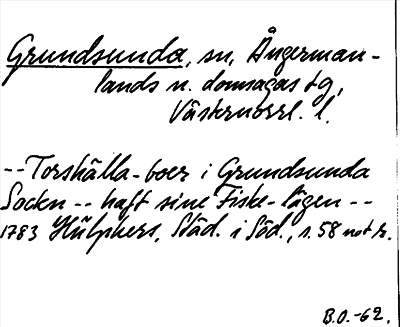 Grundsunda, sn, Ångerman-
lands n. domsagas tg,
Västernorrl. l.
-- Torshälla-boer i Grundsunda
Sockn -- haft sine Fiske-lägen --
1783 Hülphers, Städ. i Söd., s. 58 not r.
B.O. -62.